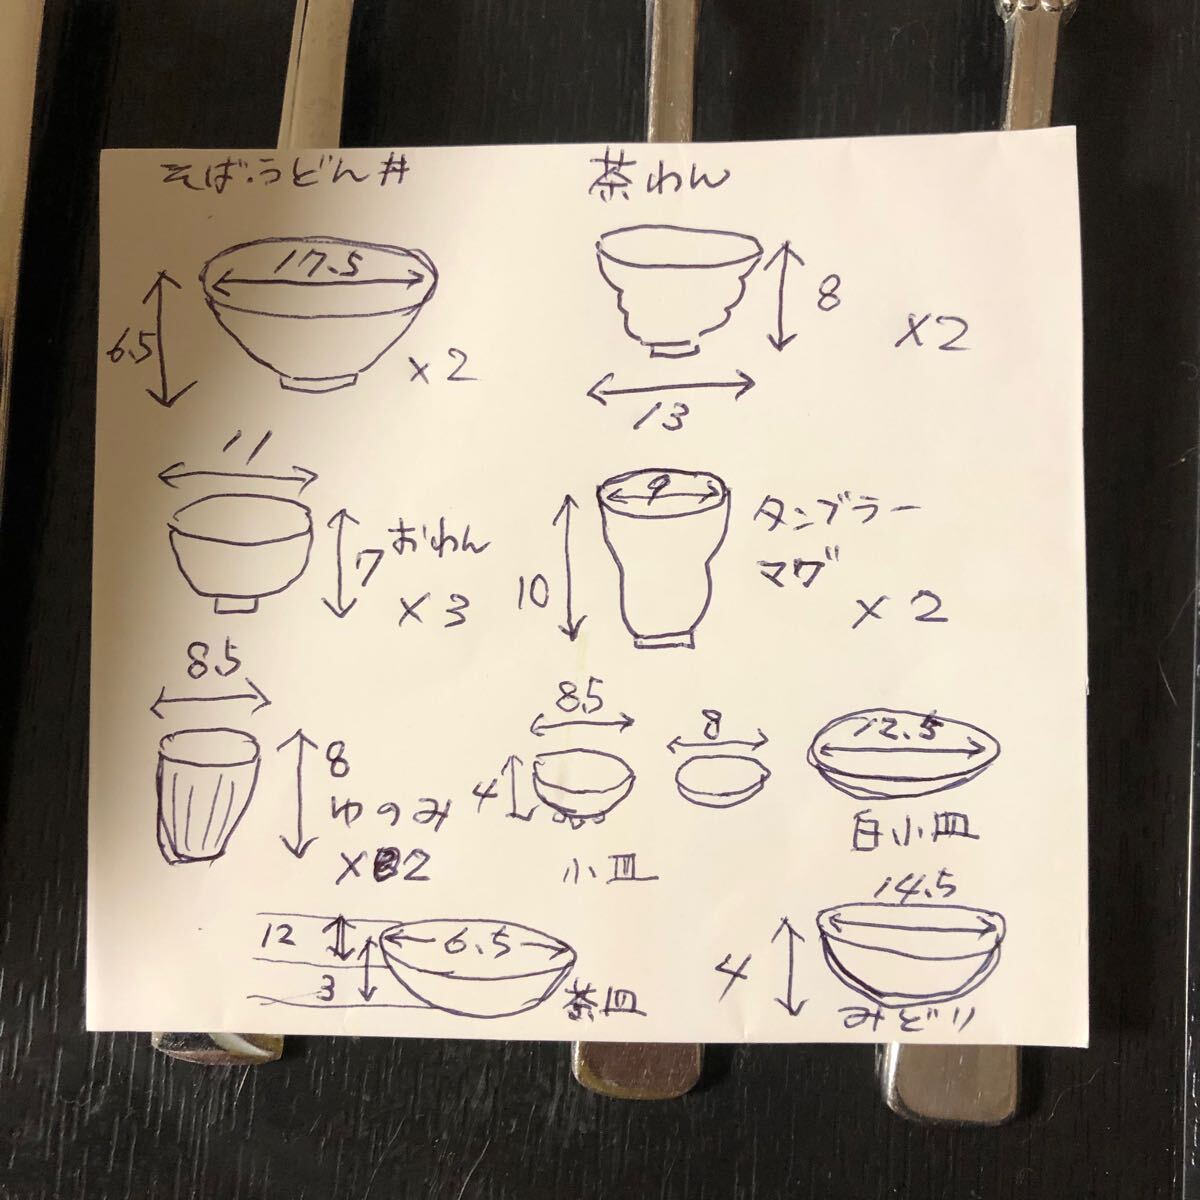 そば・うどん丼
17.5
6.5
×2
茶わん
8
×2
13
11
7
おわん
×3
9
10
タンブラー
マグ
×2
8.5
8
ゆのみ
×2
8.5
4
8
小皿
12.5
白小皿
12
6.5
3
茶皿
14.5
4
みどり